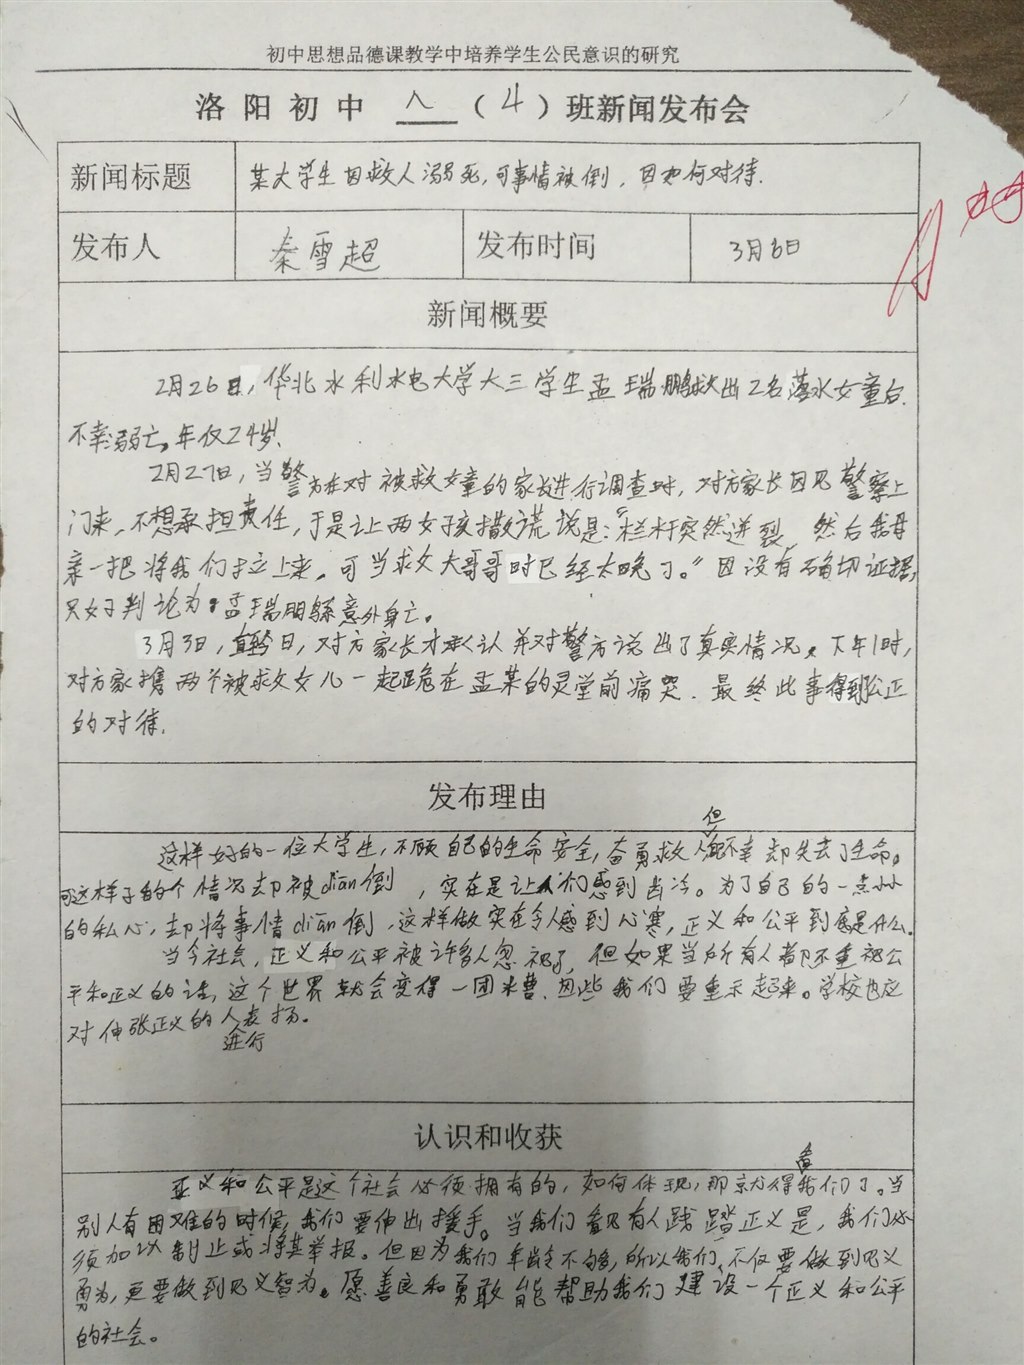 初中思想品德课教学中培养学生公民意识的研究
洛阳初中 八 （4）班新闻发布会
新闻标题 某大学生因救人溺死，可事情被倒，因如何对待.
发布人 秦雪超 发布时间 3月6日
新闻概要
2月26日，华北水利水电大学大三学生孟瑞鹏救出2名落水女童后.
不幸溺亡。年仅24岁.
2月27日，当警方在对被救女童的家长进行调查时，对方家长因见警察上
门来，不想承担责任，于是让两女孩撒谎说是：“栏杆突然迸裂，然后我母
亲一把将我们拉上来，可当救大哥哥时已经太晚了。”因没有确切证据，
只好判论为：孟瑞鹏系意外身亡。
3月3日，直 日，对方家长才承认并对警方说出了真实情况。下午1时，
对方家携两个被救女儿一起跪在孟某的灵堂前痛哭．最终此事得到公正
的对待.
发布理由
这样好的一位大学生，不顾自己的生命安全，奋勇救人但不幸却失去了生命。
可这样子的个情况却被diān倒，实在是让人们感到齿冷。为了自己的一点小小
的私心，却将事情diān倒，这样做实在令人感到心寒，正义和公平到底是什么.
当今社会，正义和公平被许多人忽视了，但如果当所有人都不重视公
平和正义的话，这个世界就会变得一团糟．因些我们要重示起来。学校也应
对伸张正义的人进行表扬。
认识和收获
正义和公平是这个社会必须拥有的，如何体现，那就得看我们了。当
别人有困难的时候，我们要伸出援手。当我们看见有人践踏正义是，我们必
须加以制止或将其举报。但因为我们年龄不够，所以我们，不仅要做到见义
勇为，更要做到见义智为。愿善良和勇敢能帮助我们建设一个正义和公平
的社会。